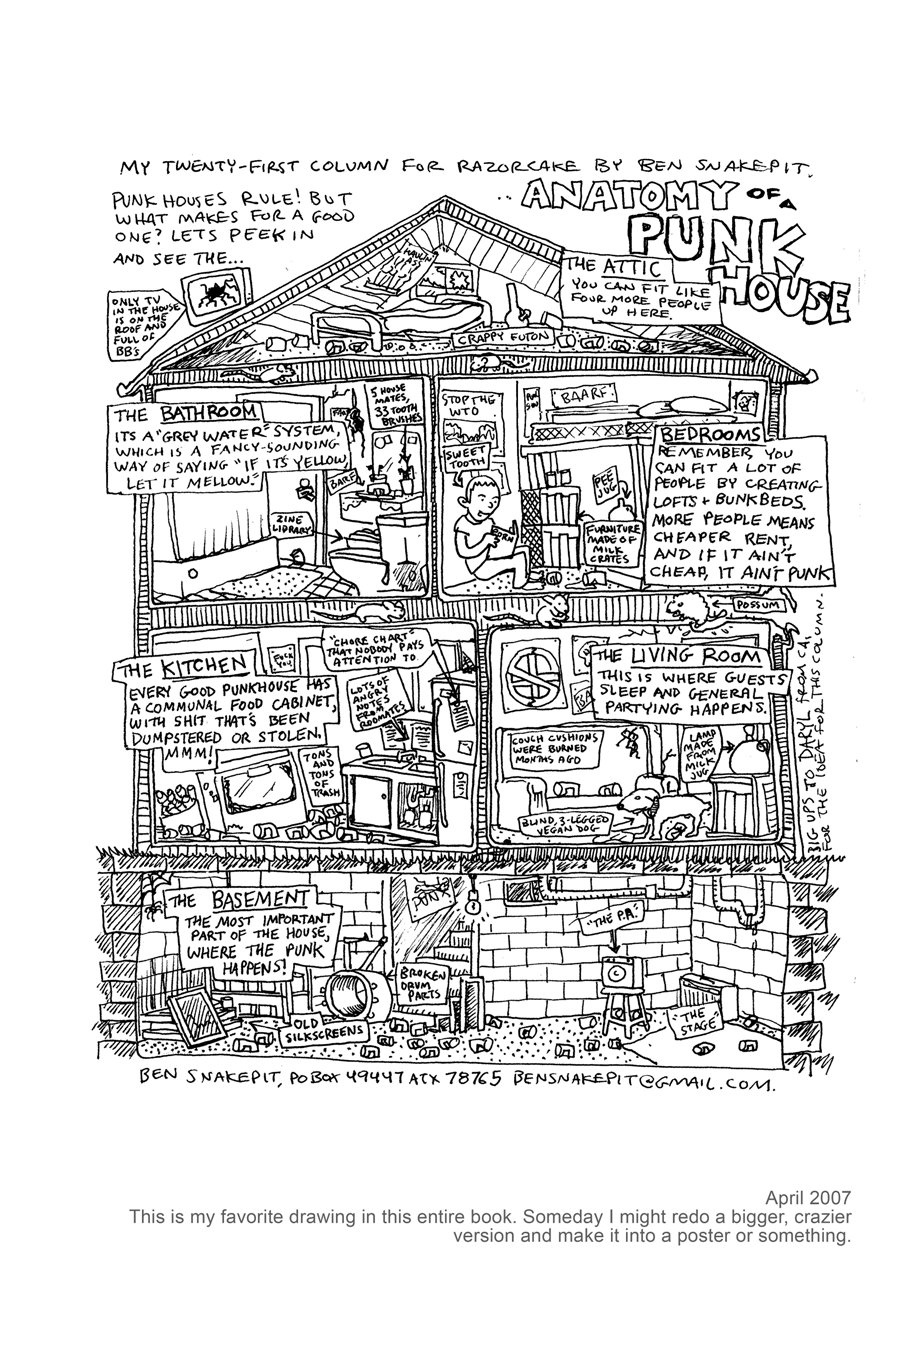 MY TWENTY-FIRST COLUMN FOR RAZORCAKE BY BEN SNAKEPIT.
PUNK HOUSES RULE! BUT
WHAT MAKES FOR A GOOD
ONE? LETS PEEK IN
AND SEE THE...
..ANATOMY OF A
PUNK
HOUSE
ONLY TV
IN THE HOUSE
IS ON THE
ROOF AND
FULL OF
BB'S
THE ATTIC
YOU CAN FIT LIKE
FOUR MORE PEOPLE
UP HERE.
CRAPPY FUTON
THE BATHROOM
ITS A "GREY WATER" SYSTEM,
WHICH IS A FANCY-SOUNDING
WAY OF SAYING "IF IT'S YELLOW,
LET IT MELLOW."
5 HOUSE
MATES,
33 TOOTH
BRUSHES
BARF
ZINE
LIBRARY
STOP THE
WTO
SWEET
TOOTH
PORN
BAARF
PEE
JUG
FURNITURE
MADE OF
MILK
CRATES
BEDROOMS
REMEMBER, YOU
CAN FIT A LOT OF
PEOPLE BY CREATING
LOFTS + BUNKBEDS.
MORE PEOPLE MEANS
CHEAPER RENT,
AND IF IT AIN'T
CHEAP, IT AIN'T PUNK
POSSUM
THE KITCHEN
EVERY GOOD PUNKHOUSE HAS
A COMMUNAL FOOD CABINET,
WITH SHIT THAT'S BEEN
DUMPSTERED OR STOLEN.
MMM!
FUCK
YOU
"CHORE CHART"
THAT NOBODY PAYS
ATTENTION TO
LOTS OF
ANGRY
NOTES
FROM
ROOMATES
TONS
AND
TONS
OF
TRASH
THE LIVING ROOM
THIS IS WHERE GUESTS
SLEEP AND GENERAL
PARTYING HAPPENS.
COUCH CUSHIONS
WERE BURNED
MONTHS AGO
LAMP
MADE
FROM
MILK
JUG
BLIND, 3-LEGGED
VEGAN DOG
BIG UPS TO DARYL FROM CA,
FOR THE IDEA FOR THIS COLUMN.
THE BASEMENT
THE MOST IMPORTANT
PART OF THE HOUSE,
WHERE THE PUNK
HAPPENS!
PUNX
BROKEN
DRUM
PARTS
OLD
SILKSCREENS
"THE P.A."
"THE
STAGE"
BEN SNAKEPIT, PO BOX 49447 ATX 78765 BENSNAKEPIT@GMAIL.COM.
April 2007
This is my favorite drawing in this entire book. Someday I might redo a bigger, crazier
version and make it into a poster or something.